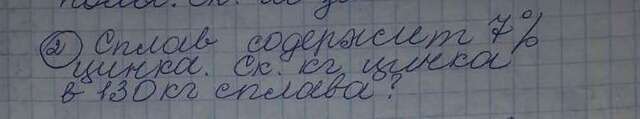 ② Сплав содержит 7%
цинка. Ск. кг цинка
в 130кг сплава?